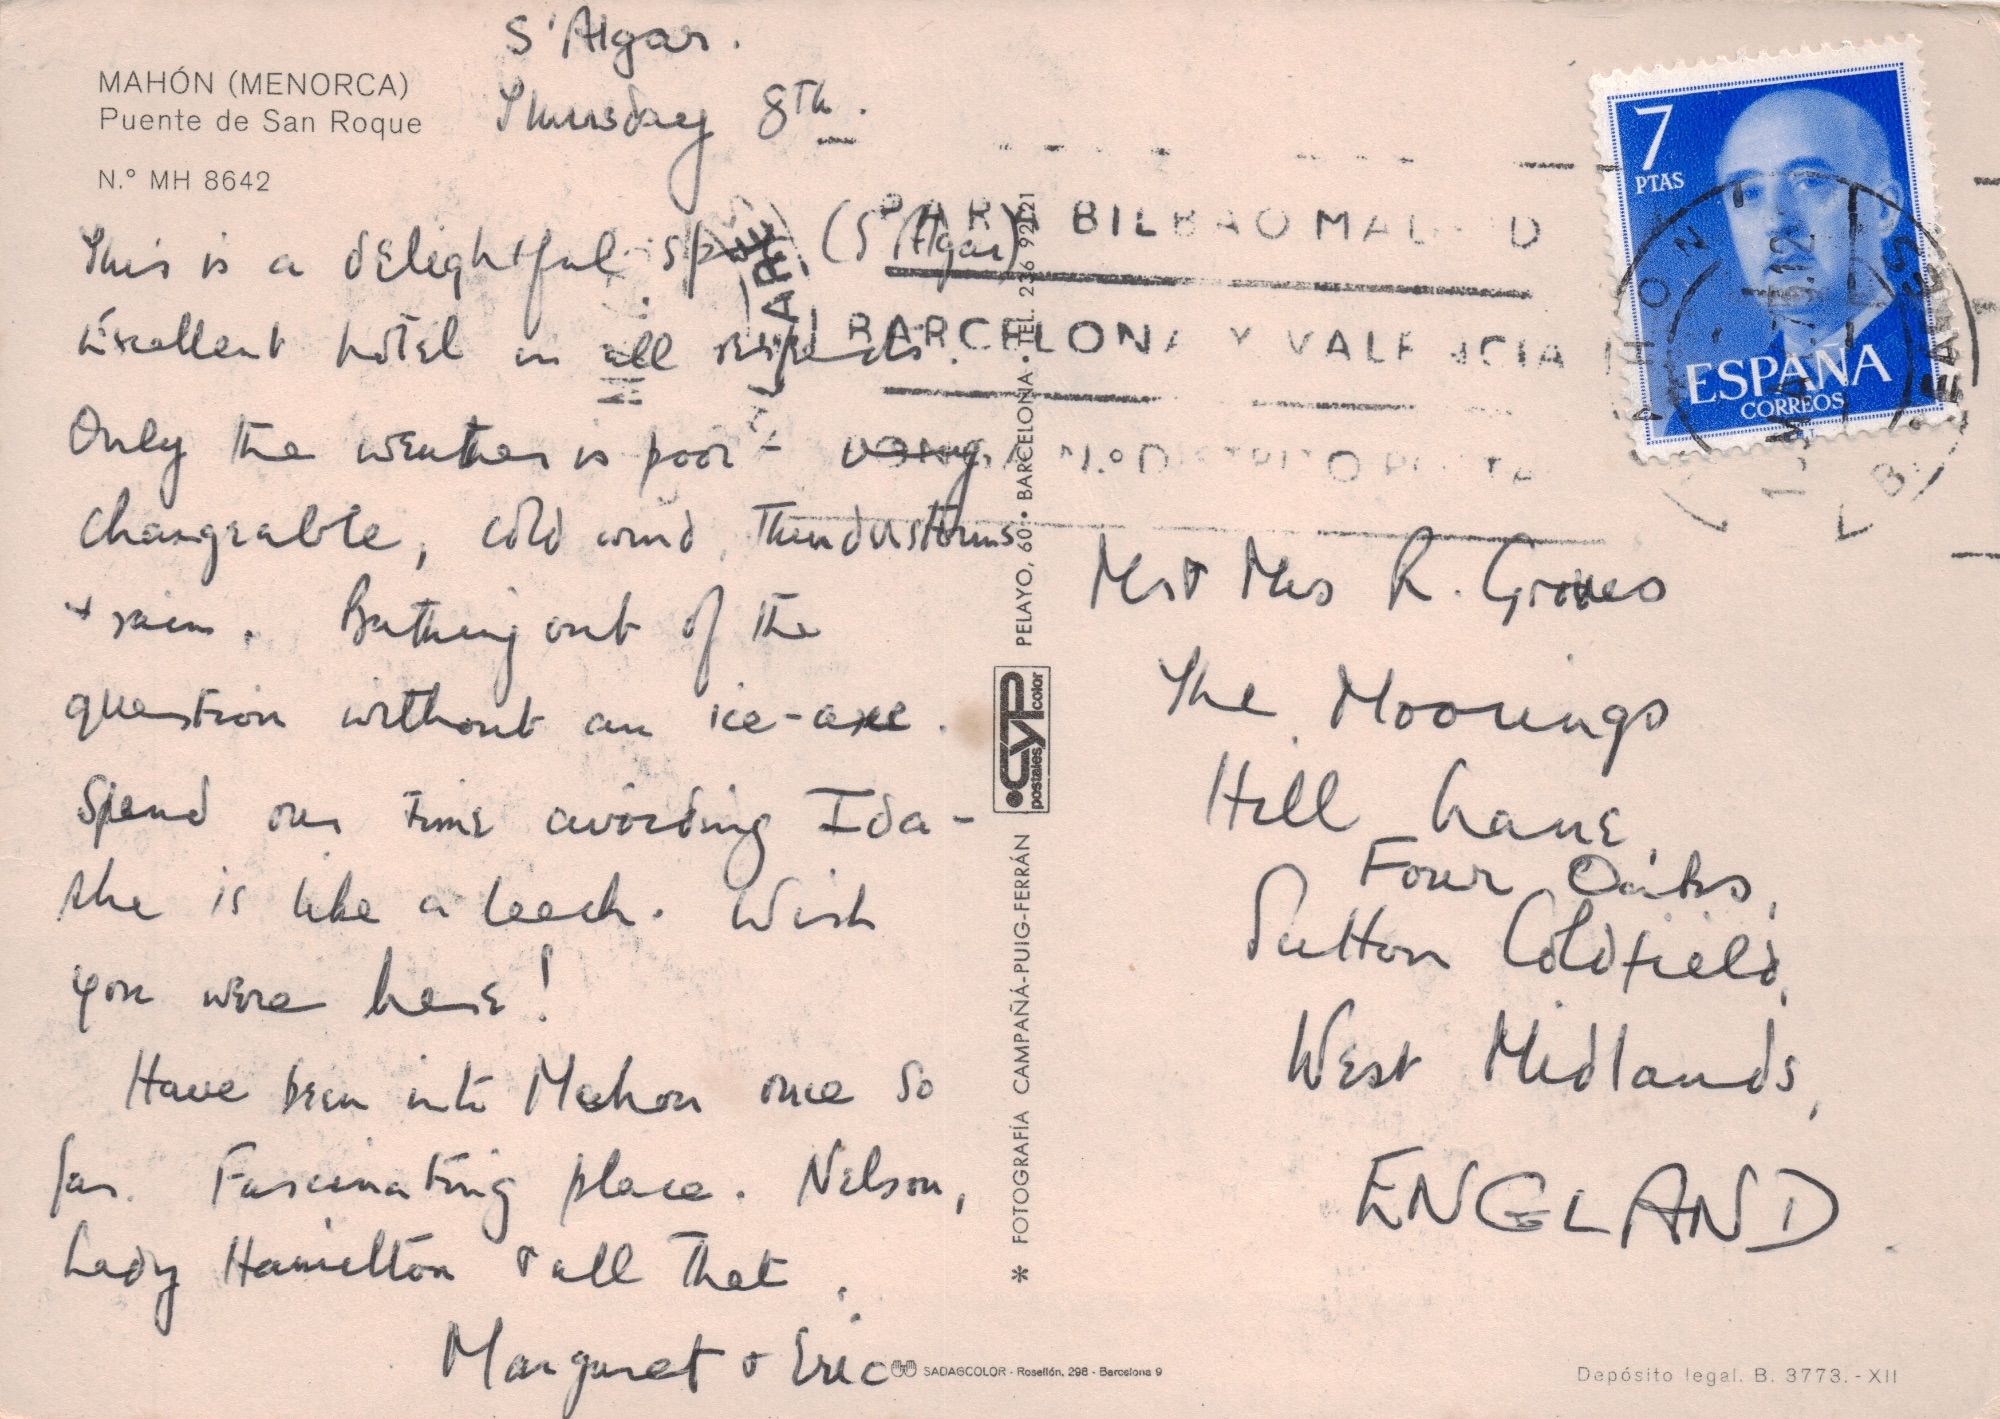 MAHÓN (MENORCA)
Puente de San Roque
N.º MH 8642
S'Algar.
Thursday 8th.
This is a delightful spot (S'Algar)
Excellent hotel in all respects.
Only the weather is poor - very
changeable, cold wind, Thunderstorms
+ rain. Bathing out of the
question without an ice-axe.
Spend our time avoiding Ida -
she is like a leech. Wish
you were here!
Have been into Mahon once so
far. Fascinating place. Nelson,
Lady Hamilton & all that.
Margaret & Eric
PARA BILBAO MADRID
BARCELONA Y VALENCIA
N.º DISTRITO POSTAL
7
PTAS
ESPAÑA
CORREOS
MAHON
BALEARES
Mr & Mrs R. Groves
The Moorings
Hill Lane,
Four Oaks,
Sutton Coldfield,
West Midlands,
ENGLAND.
* FOTOGRAFÍA CAMPAÑÁ-PUIG-FERRÁN CYP color postales PELAYO, 60 • BARCELONA • TEL. 236 92 21
SADAGCOLOR - Rosellón, 298 - Barcelona 9
Depósito legal. B. 3773.-XII